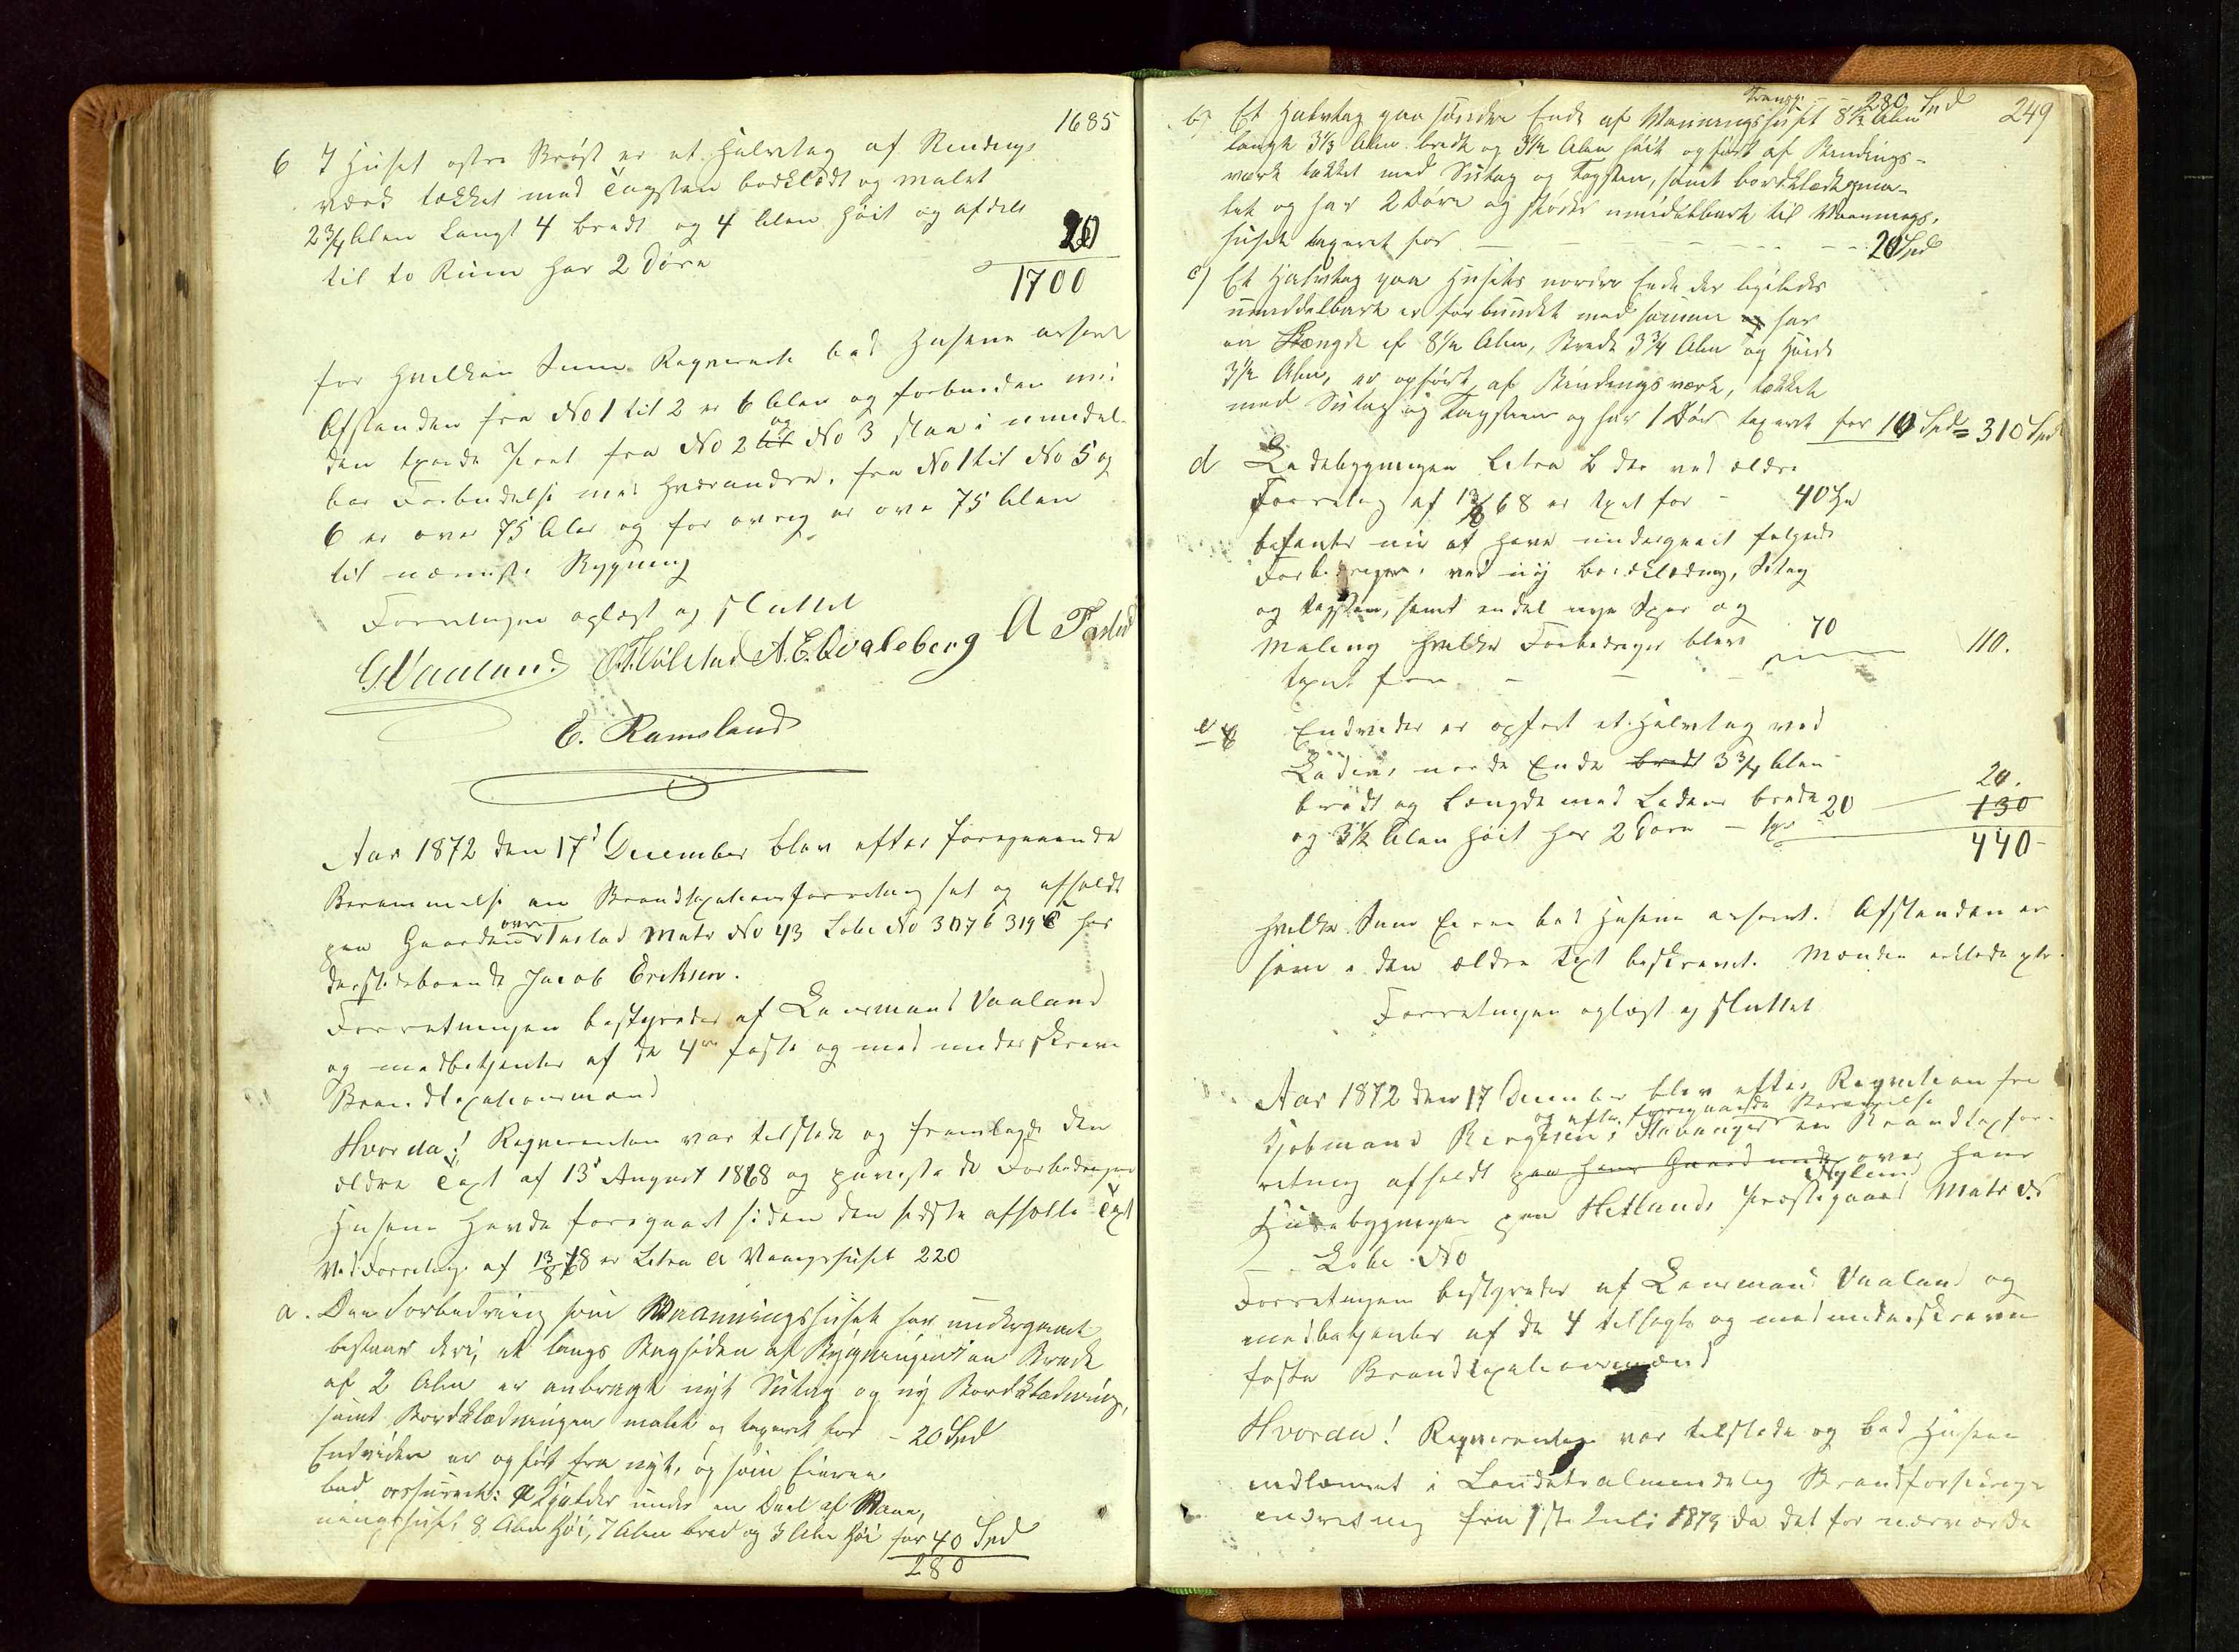 1685
6 I Huset østre Brøst er et Halvtag af Bindings
værk tækket med Tagsten bordklædt og malet
2 3/4 Alen Langt 4 bredt og 4 Alen høit og afdelt
til to Rum har 2 Døre
20
1700
for hvilken Sum Reqvirente bad Husene assuret
Afstanden fra No 1 til 2 er 6 Alen og forbunden ved
den fra No 2 til og No 3 staa i umidel
bar Forbindelse med hverandre, fra No 1 til No 5 og
6 er over 75 Alen og for øvrig er over 75 Alen
til nærmeste Bygning
Forretningen oplæst og sluttet
G Vaaland A. E. Qvaleberg A Tasted
E. Ramsland
Aar 1872 den 17d December blev efter foregaaende
Berammelse en Brandtaxationsforretning sat og afholdt
paa Gaarden øvre Tastad Matr No 43 Løbe No 307 b 319 c hos
derstedsboende Jacob Eriksen.
Forretningen bestyredes af Lensmand Vaaland
og medbetjentes af de 4re faste og med underskrevne
Brandtaxationsmænd
Hvorda! Reqvirenten var tilstede og fremlagde den
ældre Taxt af 13d August 1868 og paaviste de Forbedringer
Husene havde foregaaet siden den sidste afholdte Taxt
Ved Forretning af 13/8 68 er Litra A Vaaningshuset 220
a. Den Forbedring som Vaaningshuset har undergaaet
bestaar deri, at langs Bagsiden af Bygningen i en Bredde
af 2 Alen er anbragt nyt Sutag og ny Bordklædning,
samt Bordklædningen malet og taxeret for - 20 Spd
Endvidere er opført fra nyt, og som Eieren
bad assureret: a Kjælder under en Deel af Vaan,
ningshuset 8 Alen høi, 7 Alen bred og 3 Alen høi for 40 Spd
280
Transp: - 280 Spd
249
b) Et Halvtag paa søndre Ende af Vaaningshuset 8 1/2 Alen
langt 3 1/2 Alen bredt og 3 1/2 Alen høit opført af Bindings-
værk tækket med Sutag og Tagsten, samt bordklædt og ma-
let og har 2 Døre og støder umiddelbart til Vaanings-
huset taxeret for - - - - - 20 Spd
c) Et Halvtag paa Husets nordre Ende der ligeledes
umiddelbart er forbundet med samme og har
en Længde af 8 1/2 Alen, Bredde 3 3/4 Alen og Høide
3 1/2 Alen, er opført af Bindingsværk, tækket
med Sutag og Tagsteen og har 1 Dør taxeret for 10 Spd = 310 Spd
d Ladebygningen Litra B der ved ældre
Forretning af 13/8 68 er taxet for - 40 Spd
befantes nu at have undergaait følgende
Forbedringer, ved ny bordklædning, Sutag
og tagsten, samt endel nye Sper og
Maling hvilke Forbedringer blev 70
taxet for - - - 110.
e Endvider er opført et Halvtag ved
Ladens nordre Ende bredt 3 3/4 Alen
bredt og Længde med Ladens brede 20 20.
og 3 1/2 Alen høit har 2 Døre - 130
440-
hvilke Sum Eieren bad Husene assuret. Afstanden er
som i den ældre Taxt beskrevet. Mændene
Forretningen oplæst og sluttet
Aar 1872 den 17 December blev efter Reqvisition fra
og efter foregaaende Berammelse
Kjøbmand Bergesen, Stavanger en Brandtaxfor-
retning afholdt paa hans Gaard under over hans
Nylund
Husebygninger paa Hetlands Præstegaard Matr No
Løbe No
Forretningen bestyredes af Lensmand Vaaland og
medbetjentes af de 4 tilsagte og medunderskrevne
faste Brandtaxationsmænd
Hvorda! Reqvirenten var tilstede og bad Husene
indlemmet i Landets almindelig Brandforsikrings
indretning fra 1ste Juli 1873 da det for nærværende